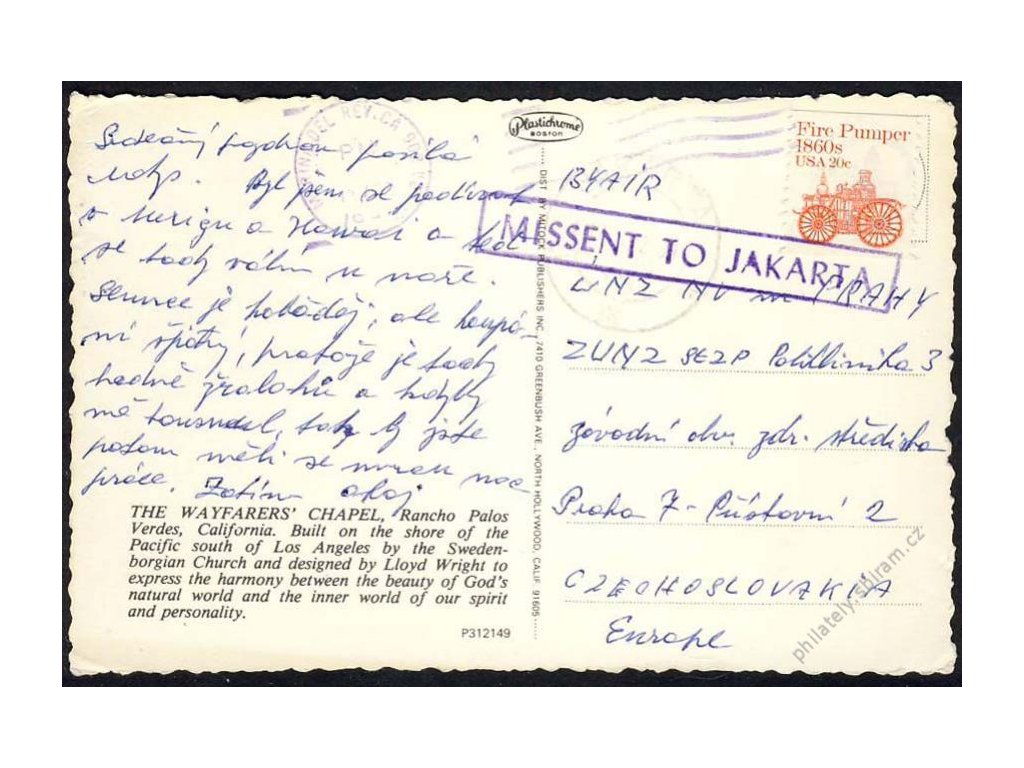 Srdečný pozdrav posílá
. Byl jsem se podívat
v a Hawai a teď
se tady válím u moře.
Slunce je , ale koupá-
ní špatný, protože je tady
hodně žraloků a kdyby
mě , tak by jste
potom měli se mnou moc
práce. Zatím ahoj
THE WAYFARERS' CHAPEL, Rancho Palos
Verdes, California. Built on the shore of the
Pacific south of Los Angeles by the Sweden-
borgian Church and designed by Lloyd Wright to
express the harmony between the beauty of God's
natural world and the inner world of our spirit
and personality.
P312149
Plastichrome
BOSTON
DIST BY MITOCK PUBLISHERS INC., 7410 GREENBUSH AVE., NORTH HOLLYWOOD, CALIF. 91605
DEL REY, CA
PM
Fire Pumper
1860s
USA 20c
BY AIR
MISSENT TO JAKARTA
ÚNZ NV m PRAHY
ZUNZ SEZP Poliklinika 3
závodní obv. zdr. středisko
Praha 7 - Přístavní 2
CZECHOSLOVAKIA
Europe
philately.sbiram.cz